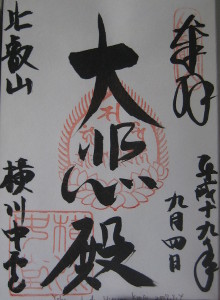 奉拝
平成十九年
九月四日
大悲殿
比叡山
横川中堂